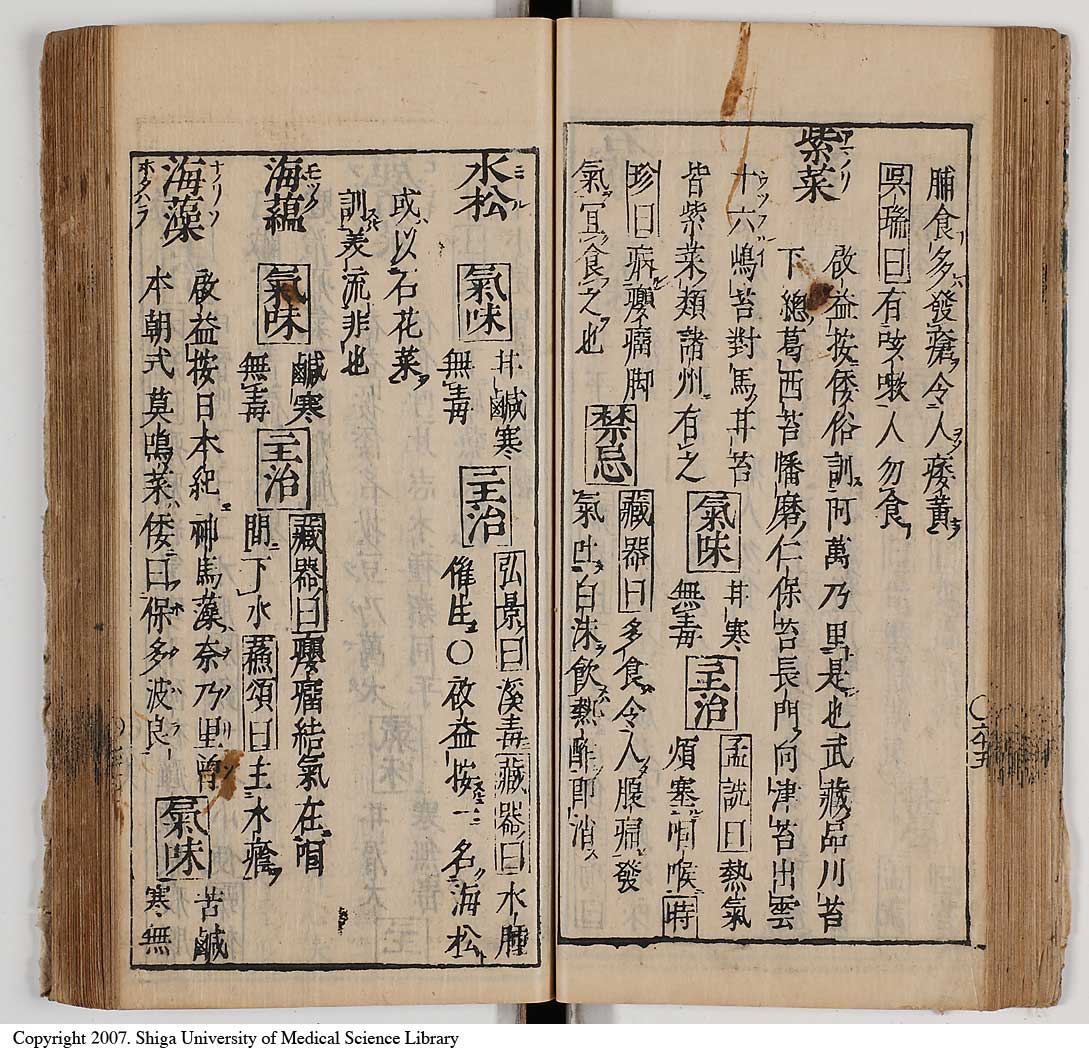 脯食多發瘡令人痿黃
呉瑞曰有咳嗽人勿食
紫菜
アマノリ
啟益按倭俗訓阿萬乃里是也武藏品川苔
下總葛西苔幡磨仁保苔長門向津苔出雲
十六嶋苔對馬丼苔
ウツフルイ
皆紫菜類諸州有之
氣味
甘寒
無毒
主治
孟詵曰熱氣
煩塞咽喉時
珍曰病癭瘤脚
氣宜食之也
禁忌
藏器曰多食令人腹痛發
氣吐白沫飲熱酢即消
水松
ミル
氣味
甘鹹寒
無毒
主治
弘景曰溪毒藏器曰水腫
催生〇啟益按一名海松
或以石花菜
訓美流非也
海蘊
モツク
氣味
鹹寒
無毒
主治
藏器曰癭瘤結氣在咽
間下水蘓頌曰主水癊
海藻
ナノリソ
ホタハラ
啟益按日本紀神馬藻奈乃里曽
本朝式莫鳴菜倭曰保多波良
氣味
苦鹹
寒無
Copyright 2007. Shiga University of Medical Science Library